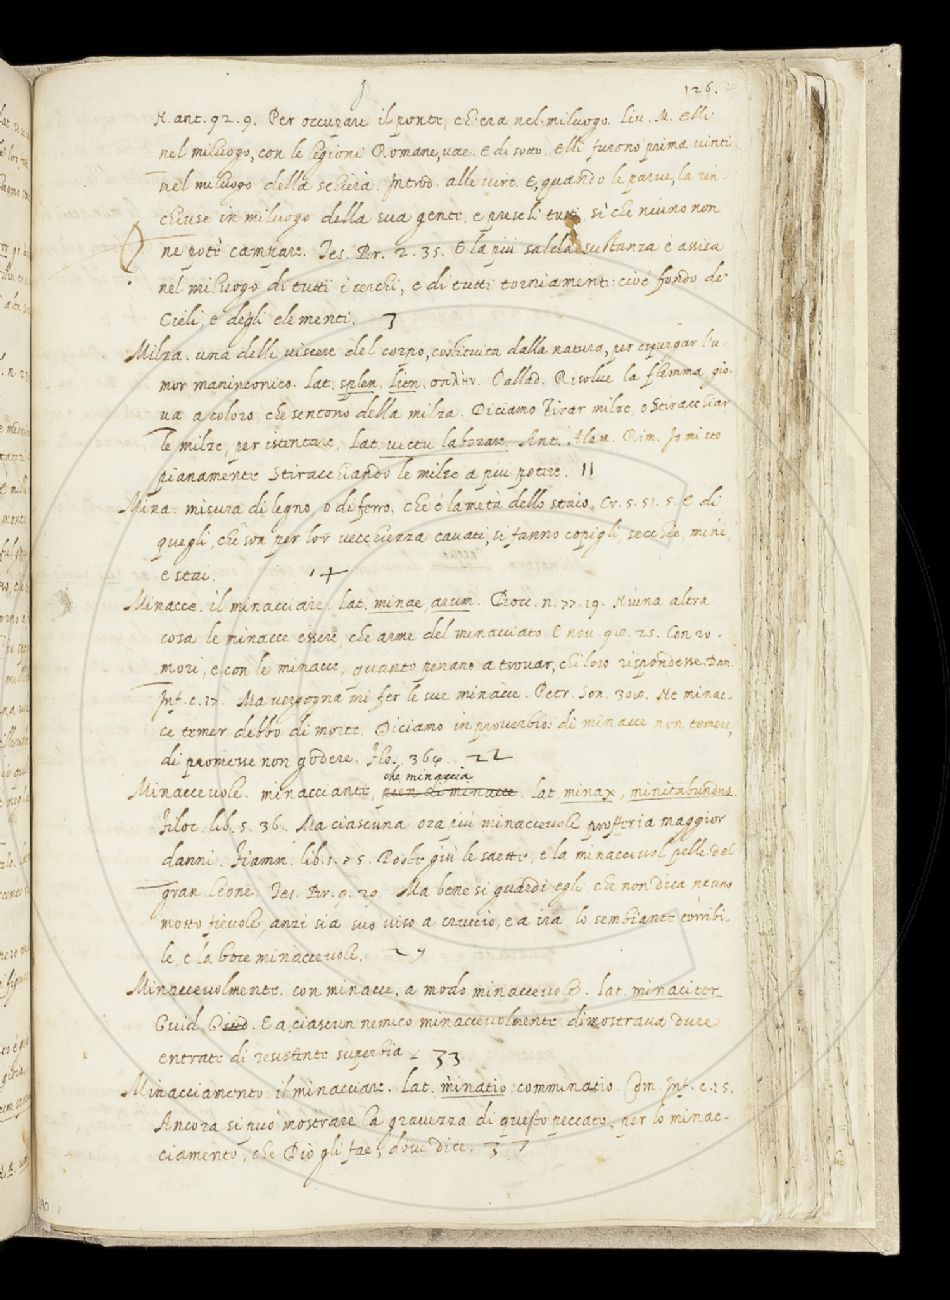 126.
N. ant. 92. 9. Per occupare il ponte, ch'era nel miluogo. Liv. M. Elli
nel miluogo, con le legioni Romane, vae. E di sotto. Elli furono prima vinti
nel miluogo della schiera. Introd. alle virt. E, quando le parve, la rin-
chiuse in miluogo della sua gente, e puseli tutti sì che niuno non
ne potè campare. Tes. Br. 2. 35. E la più salda sustanza è assisa
nel miluogo di tutti i cerchi, e di tutti torniamenti: cioè fondo de'
Cieli, e degli elementi. 3
Milza. una delle viscere del corpo, costituita dalla natura, per espurgar l'u-
mor maninconico. Lat. splen, lien, σπλὴν. Pallad. Risolve la flemma, gio-
va a coloro, che sentono della milza. Diciamo Tirar milze, o Stiracchiar
le milze, per istentare. Lat. victu laborare. Ant. Alam. Rim. Io mi sto
pianamente Stiracchiando le milze a più potere. 11
Mina. misura di legno, o di ferro, che è la metà dello staio. Cr. 5. 51. 5. E di
quegli, che son per lor vecchiezza cavati, si fanno copigli, secchie, mine,
e stai. +
Minacce. il minacciare. Lat. minae, arum. Bocc. n. 77. 19. Niuna altra
cosa le minacce essere, che arme del minacciato. E nov. 98. 25. Con ro-
mori, e con le minacce, quanto penano a trovar, chi loro rispondesse. Dan.
Inf. c. 17. Ma vergogna mi fer le sue minacce. Petr. Son. 308. Ne minac-
ce temer debbo di morte. Diciamo in proverbio: di minacce non temere,
di promesse non godere. Flos. 368. 22
che minaccia
Minaccevole. minacciante, pien di minacce. Lat. minax, minitabundus.
Filoc. lib. 5. 36. Ma ciascuna ora più minaccevole profferia maggior
danni. Fiamm. lib. 1. 75. Posto giù le saette, e la minaccevol pelle del
gran Leone. Tes. Br. 9. 29. Ma bene si guardi egli, che non dica neuno
motto fievole, anzi sia suo viso a cruccio, e a ira lo sembiante terribi-
le, e la boce minaccevole. 27
Minaccevolmente. con minacce, a modo minaccevole. Lat. minaciter
Guid. Giud. E a ciascun nemico minaccevolmente dimostrava dure
entrate di resistente superbia. 33
Minacciamento. il minacciare. Lat. minatio comminatio. Com. Inf. c. 15.
Ancora si può mostrare la gravezza di questo peccato, per lo minac-
ciamento, che Dio gli fae, dove dice. 37